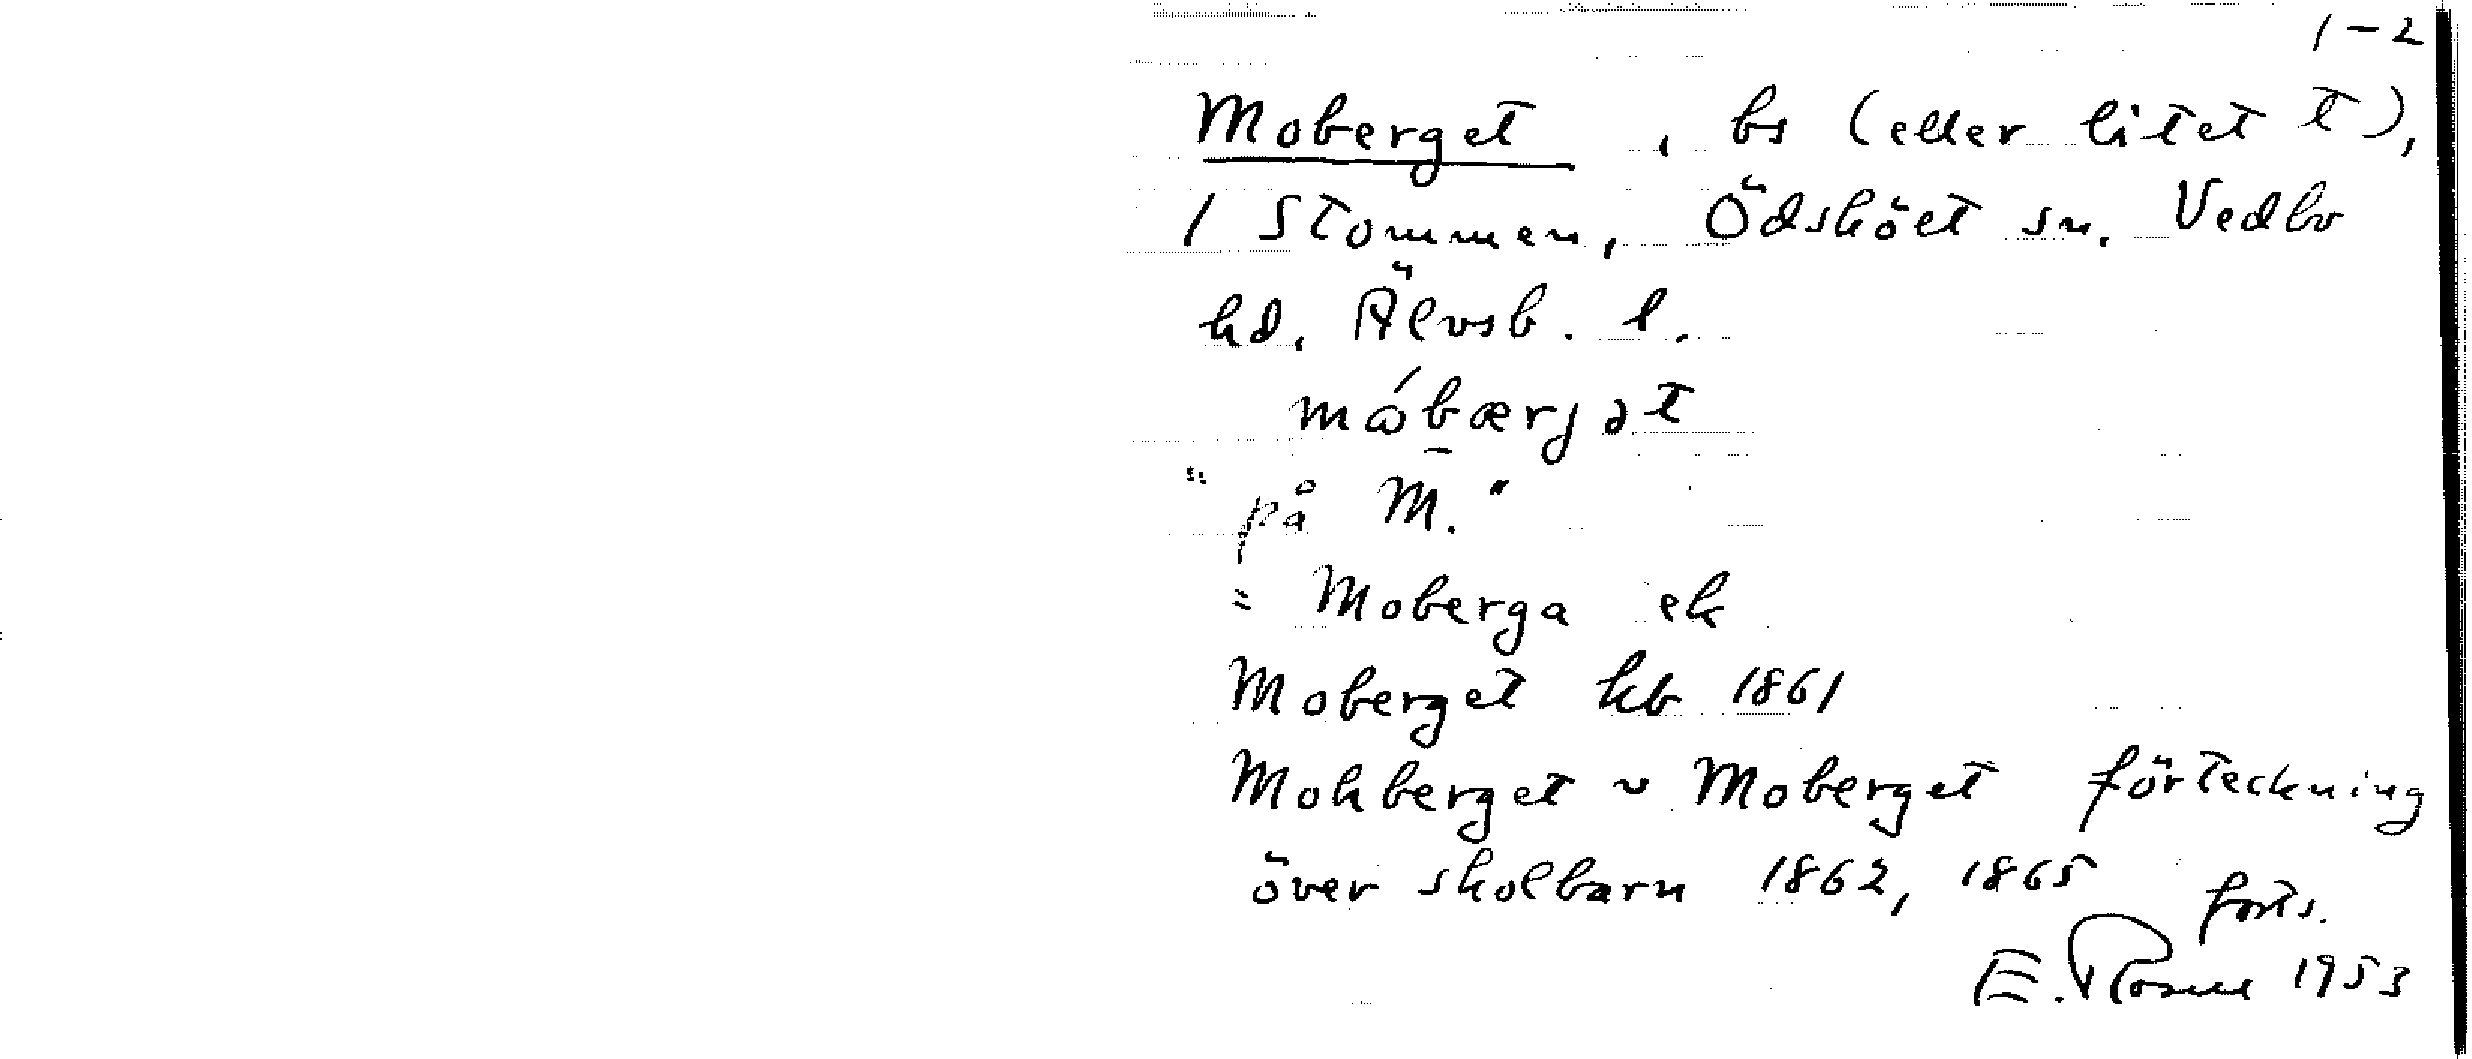 1-2
Moberget, bs (eller litet t),
/ Stommen, Ödsköet sn. Vedbo
hd. Älvsb. l.
"på M."
= Moberga ek
Moberget kb 1861
Mohberget ~ Moberget förteckning
över skolbarn 1862, 1865 forts.
E. 1953